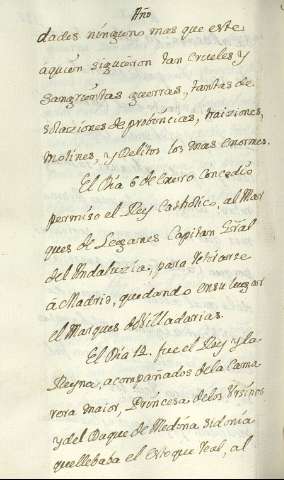 Año
dades ninguno mas que este
a quien siguieron tan crueles, y
sangrientas guerras, tantas de
solaziones de probincias, traiziones,
motines, y Delitos los mas enormes.
El Dia 6 de Enero Concedio
permiso el Rey Catholico, al Mar
ques de Leganes Capitan Gral
del Andaluzia, para retirarse
a Madrid, quedando en su lugar
el Marques de Villadarias.
El Dia 12. fue el Rey y la
Reyna, acompañados de la Cama
rera maior, Princesa de los Vrsinos
y del Duque de Medina sidonia
que llebaba el estoque real, al